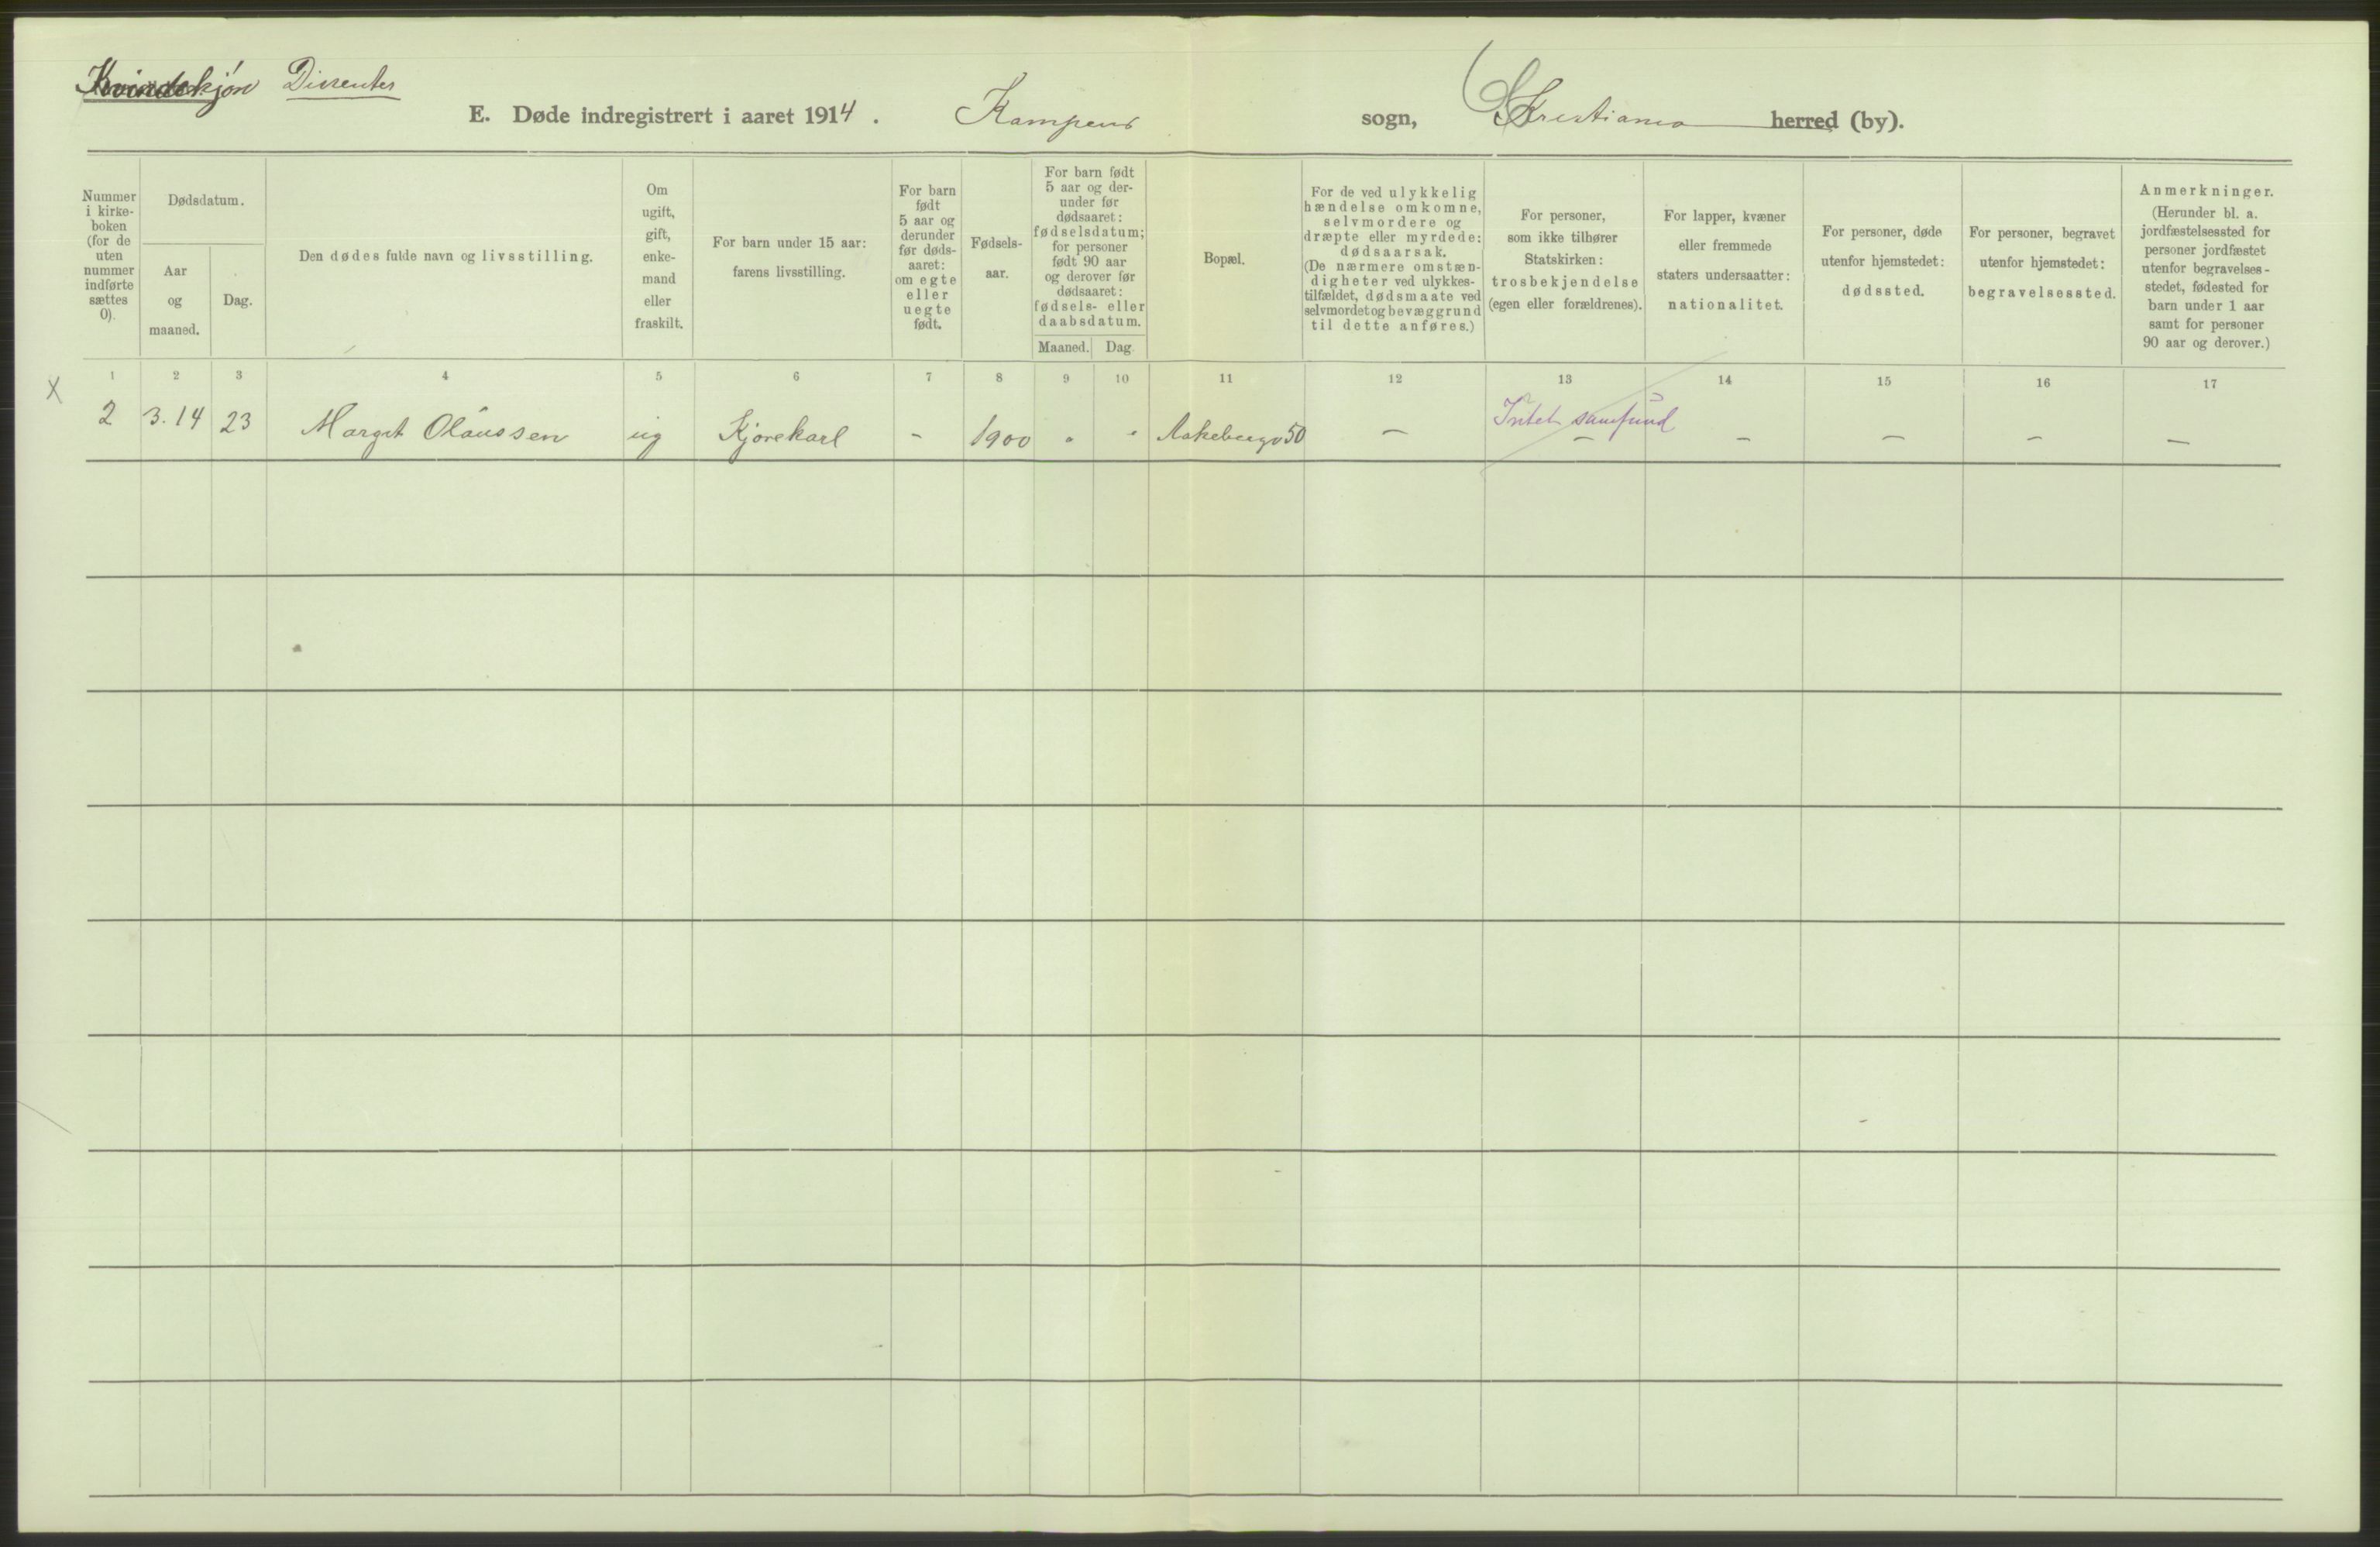 Kvindekjøn Dissenter
E. Døde indregistrert i aaret 1914. Kampens sogn, Kristiania herred (by).
Nummer
i kirke-
boken
(for de
uten
nummer
indførte
sættes
0).
Dødsdatum.
Aar
og
maaned.
Dag.
Den dødes fulde navn og livsstilling.
Om
ugift,
gift,
enke-
mand
eller
fraskilt.
For barn under 15 aar:
farens livsstilling.
For barn
født
5 aar og
derunder
før døds-
aaret:
om egte
eller
uegte
født.
Fødsels-
aar.
For barn født
5 aar og der-
under før
dødsaaret:
fødselsdatum;
for personer
født 90 aar
og derover før
dødsaaret:
fødsels- eller
daabsdatum.
Maaned. Dag.
Bopæl.
For de ved ulykkelig
hændelse omkomne,
selvmordere og
dræpte eller myrdede:
dødsaarsak.
(De nærmere omstæn-
digheter ved ulykkes-
tilfældet, dødsmaate ved
selvmordet og bevæggrund
til dette anføres.)
For personer,
som ikke tilhører
Statskirken:
trosbekjendelse
(egen eller forældrenes).
For lapper, kvæner
eller fremmede
staters undersaatter:
nationalitet.
For personer, døde
utenfor hjemstedet:
dødssted.
For personer, begravet
utenfor hjemstedet:
begravelsessted.
Anmerkninger.
(Herunder bl. a.
jordfæstelsessted for
personer jordfæstet
utenfor begravelses-
stedet, fødested for
barn under 1 aar
samt for personer
90 aar og derover.)
1 2 3 4 5 6 7 8 9 10 11 12 13 14 15 16 17
X 2 3.14 23 Margit Olaussen ug Kjørekarl - 1900 " " Aakebergv 50 - Intet samfund - - - - -